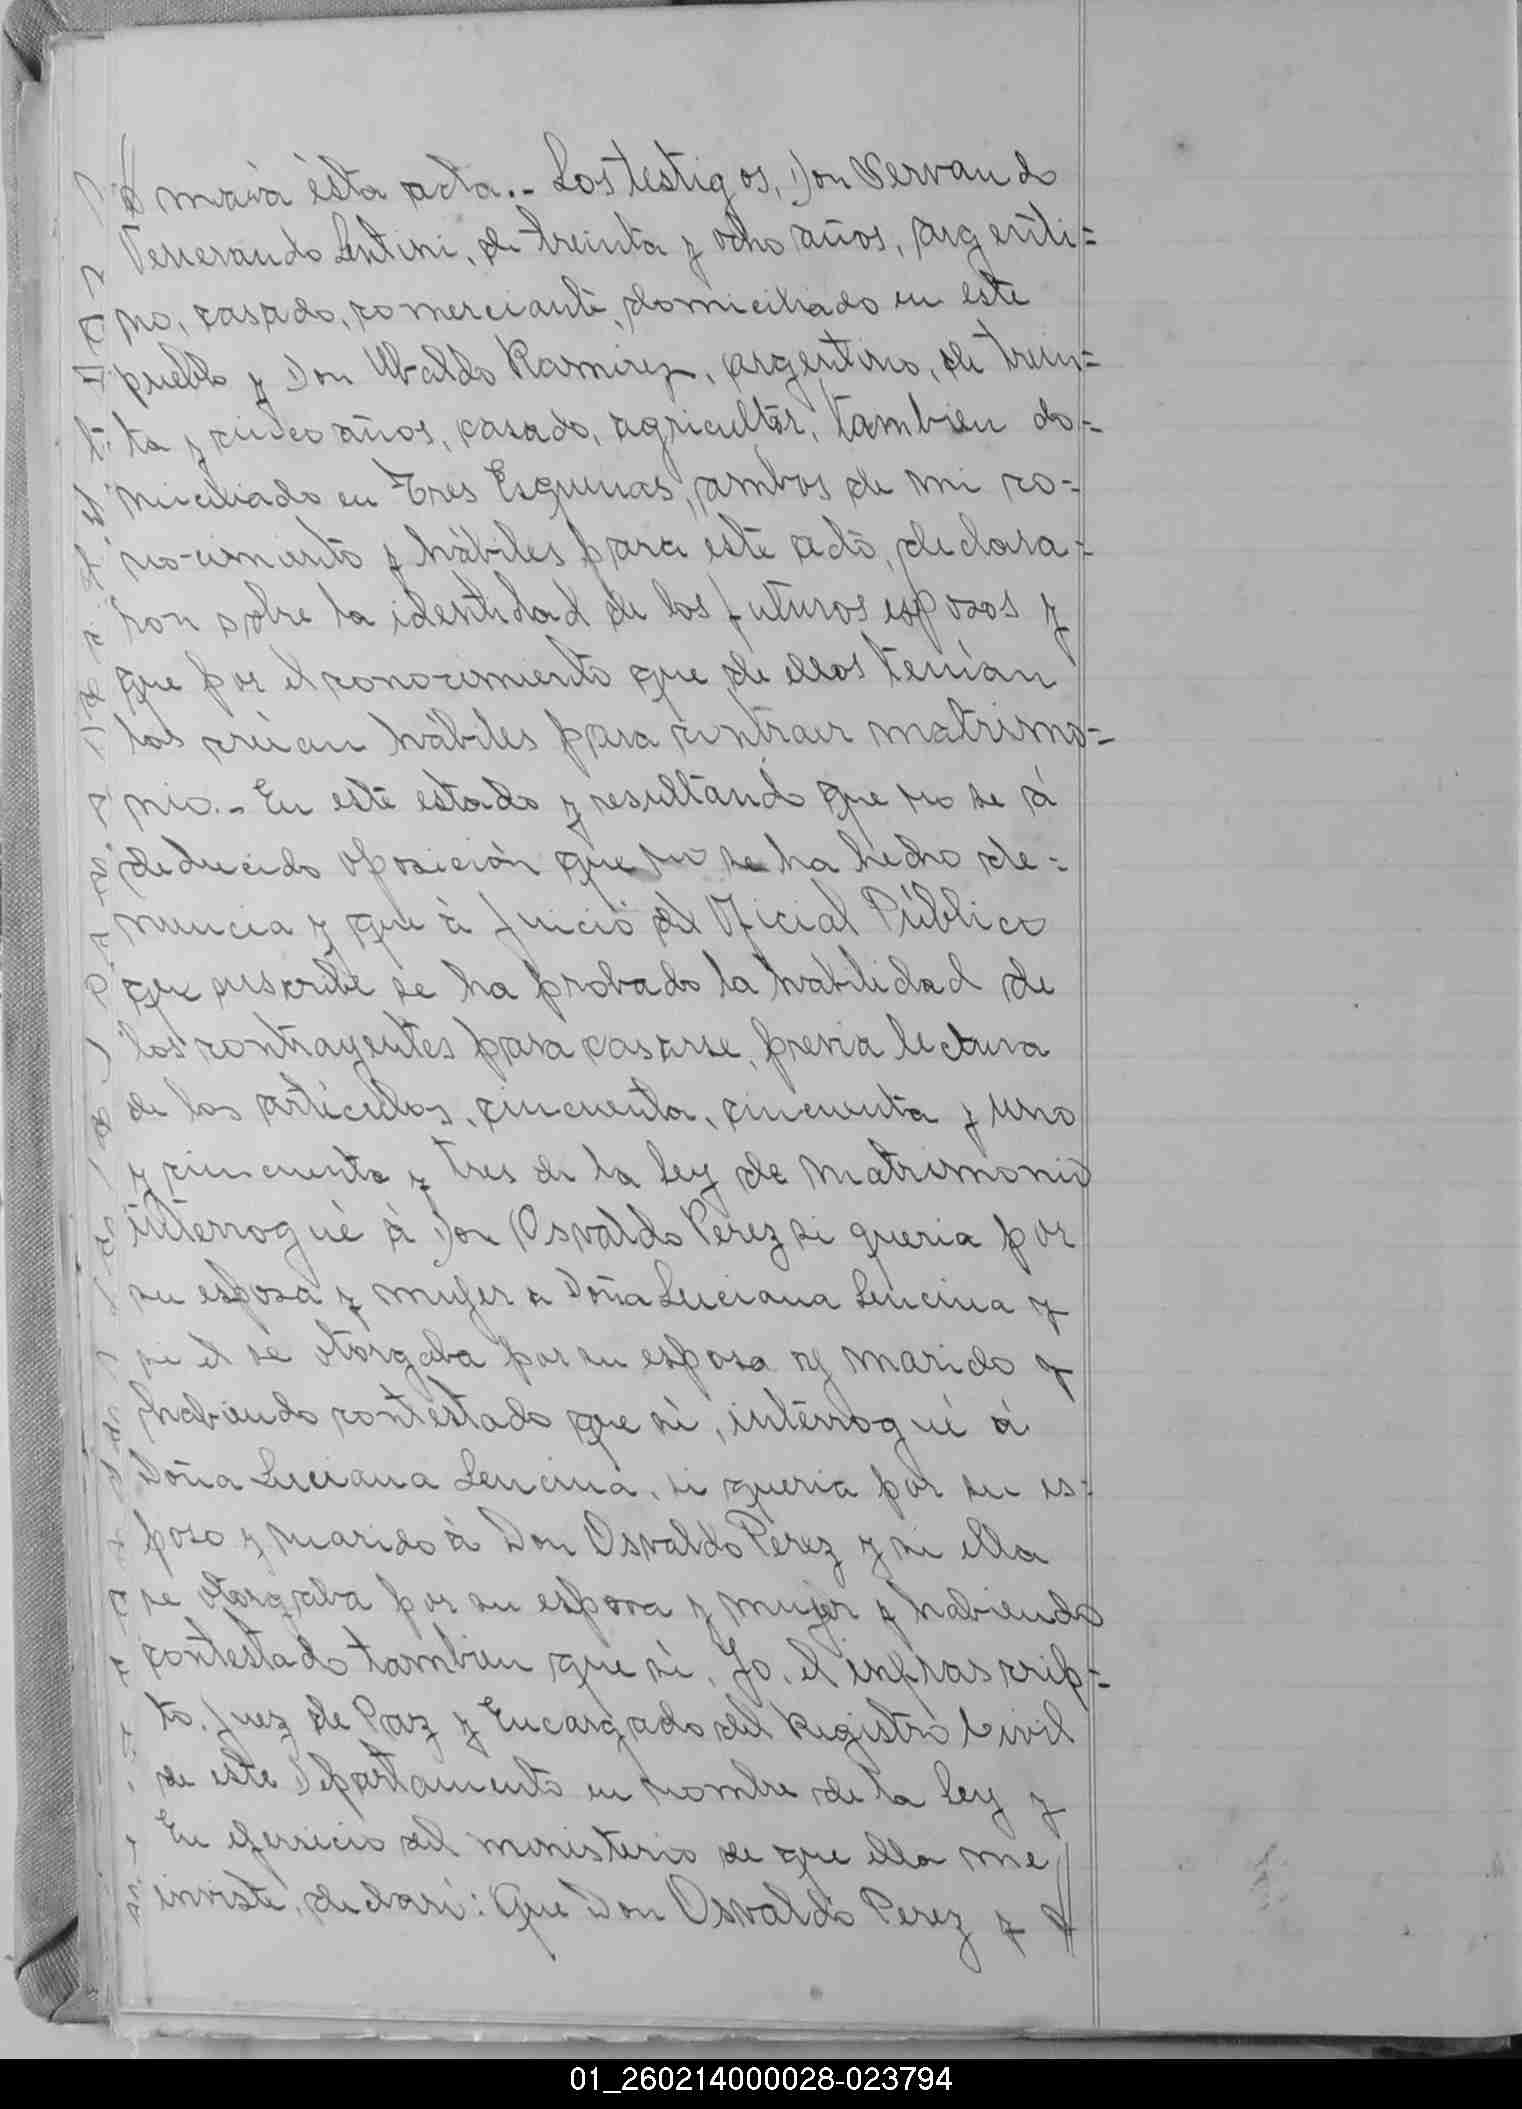 mará ésta acta.- Los testigos, Don Servando
Venerando Lentini, de treinta y ocho años, argenti=
no, casado, comerciante, domiciliado en este
pueblo y Don Ubaldo Ramirez, argentino, de trein=
ta y cinco años, casado, agricultor, tambien do=
miciliado en Tres Esquinas, ambos de mi co=
nocimiento y hábiles para este acto, declara=
ron sobre la identidad de los futuros esposos y
que por el conocimiento que de ellos tenían
los creían hábiles para contraer matrimo=
nio.- En este estado y resultando que no se á
deducido oposición que ni se ha hecho de=
nuncia y que á juicio del Oficial Público
que suscribe se ha probado la habilidad de
los contrayentes para casarse, previa lectura
de los artículos, cincuenta, cincuenta y uno
y cincuenta y tres de la ley de matrimonio
interrogué á Don Osvaldo Perez si queria por
su esposa y mujer a Doña Luciana Lencina y
si el se otorgaba por su esposo y marido y
habiendo contestado que sí, interrogué á
Doña Luciana Lencina, si queria por su es=
poso y marido á Don Osvaldo Perez y si ella
se otorgaba por su esposa y mujer y habiendo
contestado tambien que sí, Yo, el infrascrip=
to, Juez de Paz y Encargado del Registro Civil
de este Departamento en nombre de la ley y
En ejercicio del ministerio de que ella me
inviste, declaré: Que Don Osvaldo Perez y
01_260214000028-023794